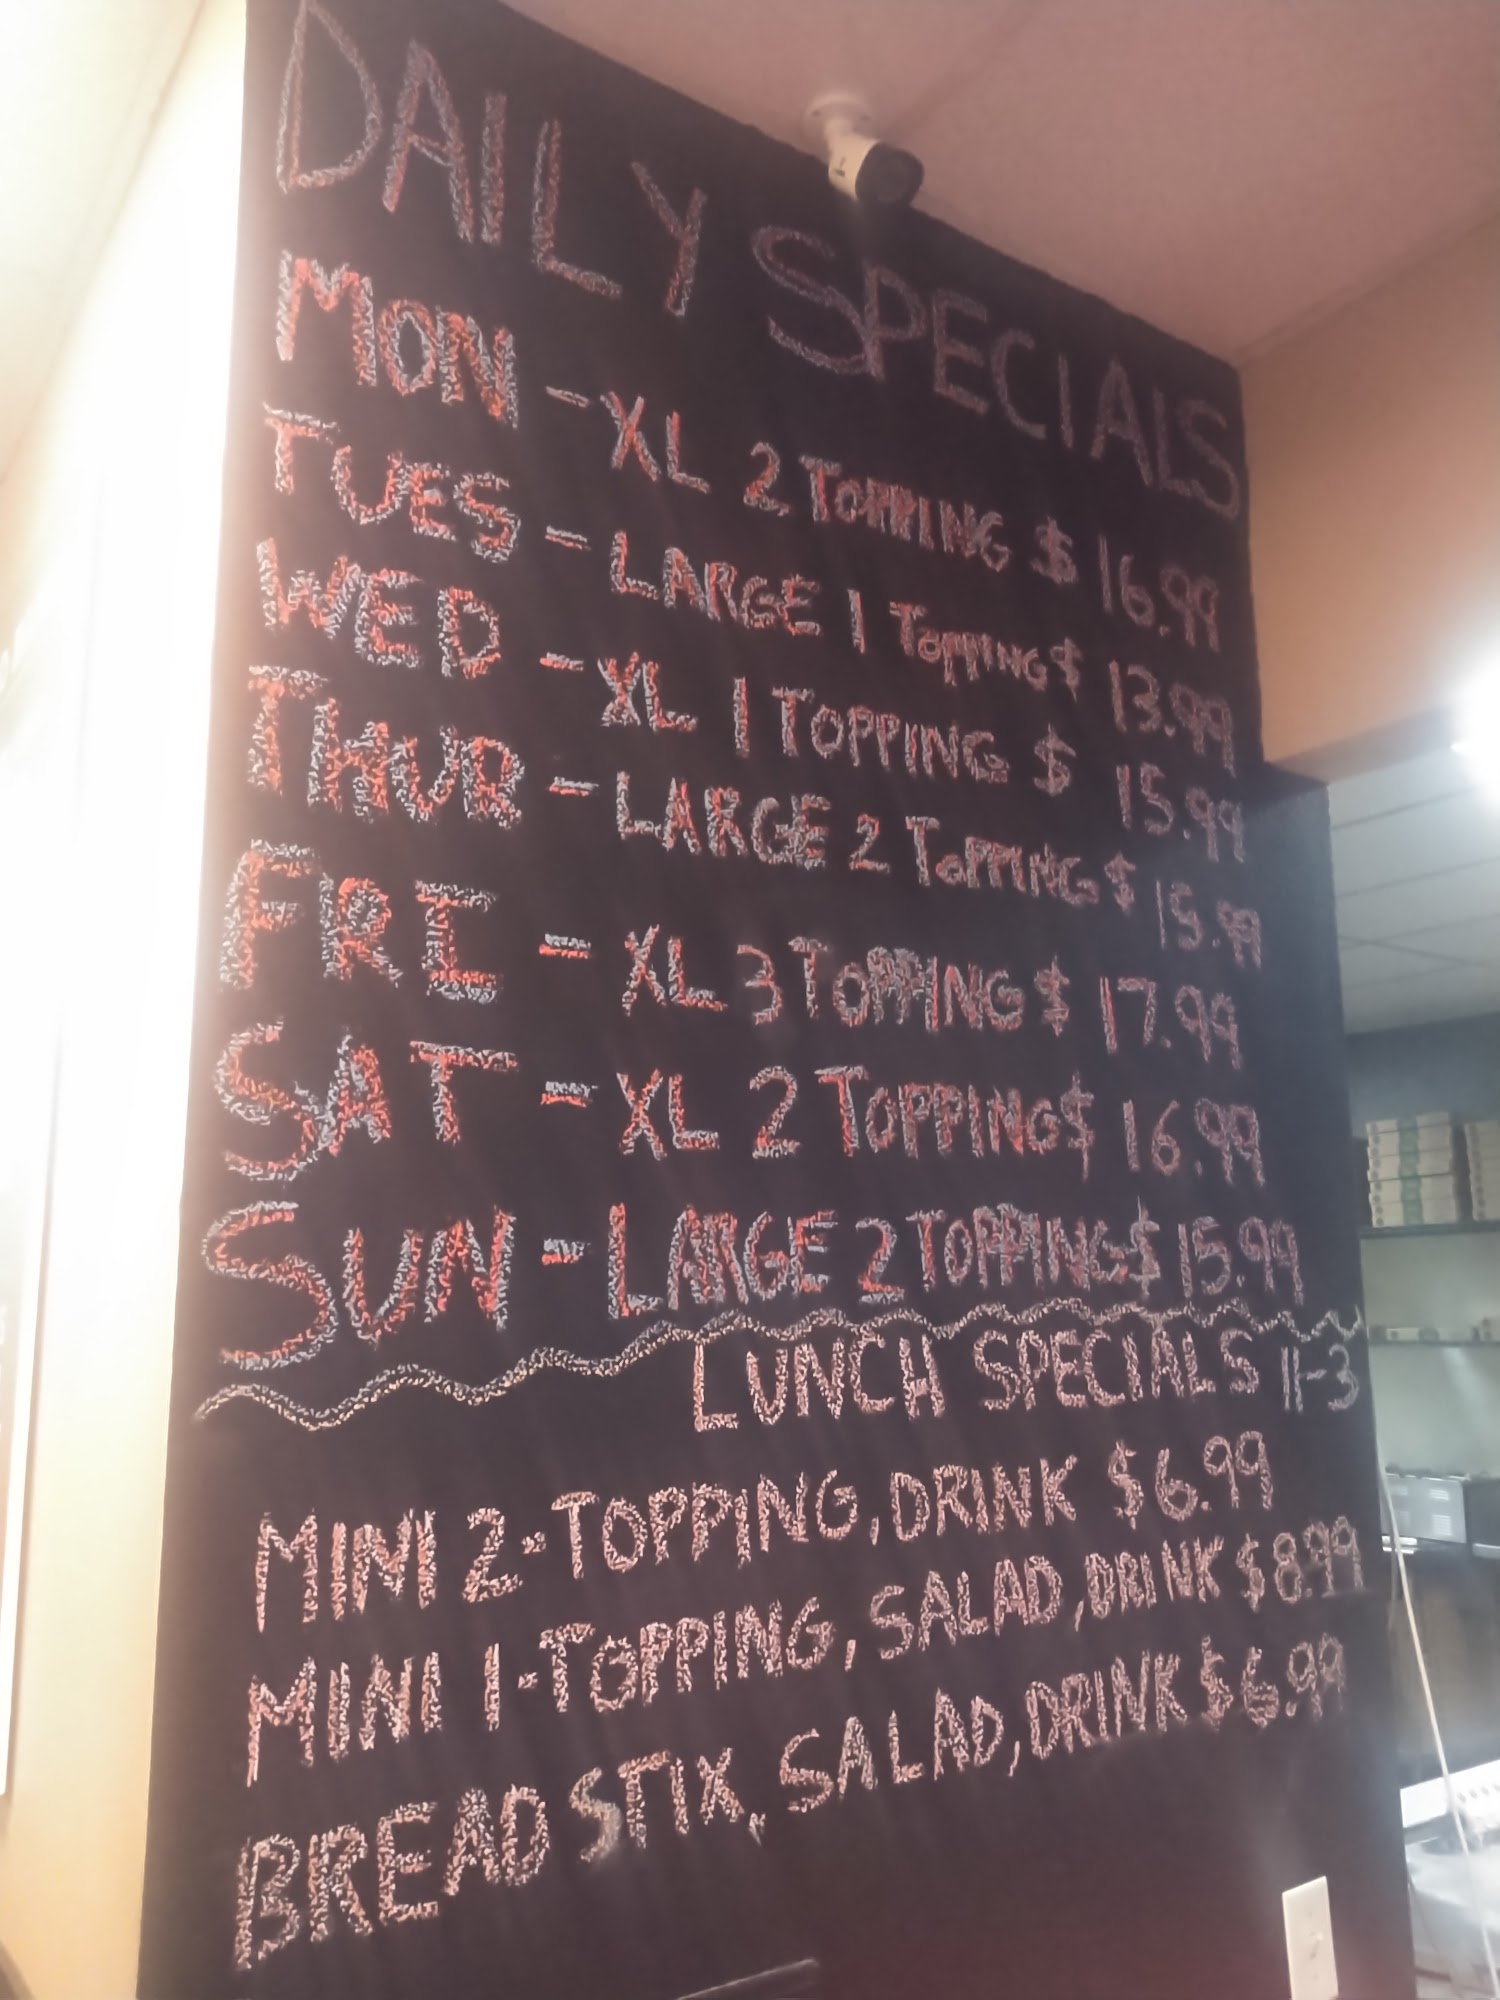 DAILY SPECIALS
MON - XL 2 TOPPING $ 16.99
TUES - LARGE 1 TOPPING $ 13.99
WED - XL 1 TOPPING $ 15.99
THUR - LARGE 2 TOPPING $ 15.99
FRI - XL 3 TOPPING $ 17.99
SAT - XL 2 TOPPING $ 16.99
SUN - LARGE 2 TOPPING $ 15.99
LUNCH SPECIALS 11-3
MINI 2-TOPPING, DRINK $6.99
MINI 1-TOPPING, SALAD, DRINK $8.99
BREAD STIX, SALAD, DRINK $6.99